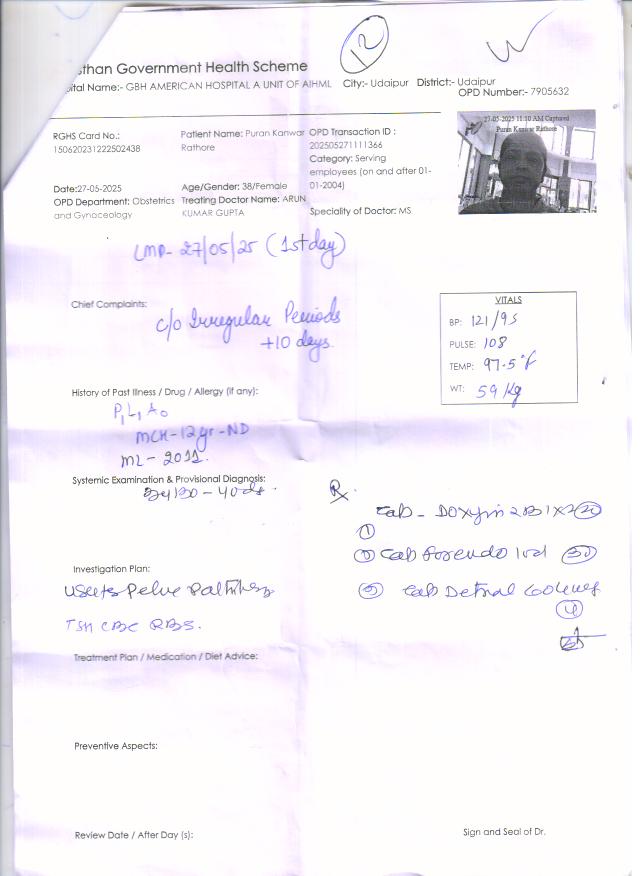 sthan Government Health Scheme
12
ital Name:- GBH AMERICAN HOSPITAL A UNIT OF AIHML City:- Udaipur District:- Udaipur
OPD Number:- 7905632
27-05-2025 11:10 AM Captured
Puran Kanwar Rathore
RGHS Card No.:
150620231222502438
Patient Name: Puran Kanwar
Rathore
OPD Transaction ID :
202505271111366
Category: Serving
employees (on and after 01-
01-2004)
Date:27-05-2025
Age/Gender: 38/Female
OPD Department: Obstetrics
and Gynoceology
Treating Doctor Name: ARUN
KUMAR GUPTA
Speciality of Doctor: MS
LMP- 27/05/25 (1st day)
Chief Complaints:
c/o Irregular Periods
+10 days.
VITALS
BP: 121/95
PULSE: 108
TEMP: 97.5°F
WT: 59 Kg
History of Past Illness / Drug / Allergy (if any):
P1L1A0
MCH-12yr-ND
ML-2011.
Systemic Examination & Provisional Diagnosis:
40 ds.
Rx
Tab - 1x2 20
1
Tab 30
Tab
Investigation Plan:
Pelvic
TSH CBC RBS.
Treatment Plan / Medication / Diet Advice:
Preventive Aspects:
Review Date / After Day (s):
Sign and Seal of Dr.